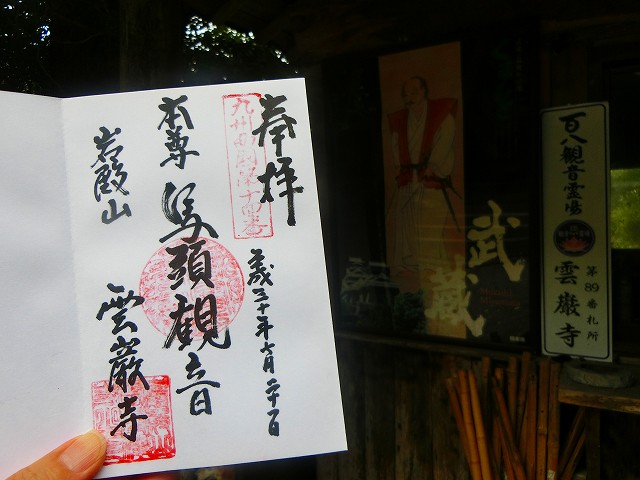 奉拝
九州西国第十四番
平成三十年六月二十日
本尊
馬頭観音
岩殿山
雲巌寺
武蔵
百八観音霊場
第89番札所
雲巌寺